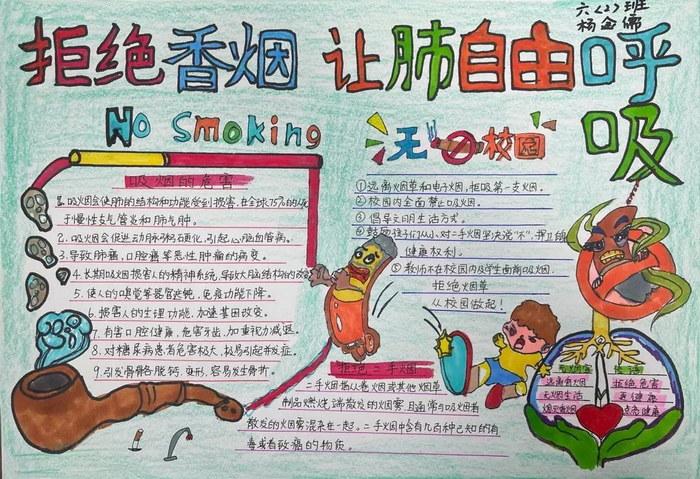 六(2)班
杨金儒
拒绝香烟 让肺自由呼
吸
No Smoking
吸烟的危害
1.吸烟会使肺的结构和功能受到损害,在全球75%的
于慢性支气管炎和肺气肿。
2.吸烟会促进动脉粥样硬化,引起心脑血管病。
3.导致肺癌,口腔癌等恶性肿瘤的病变。
4.长期吸烟损害人的精神系统,导致大脑结构的改变
5.使人的嗅觉等器官迟钝,免疫功能下降。
6.损害人的生理功能,加速基因改变。
7.有害口腔健康,危害牙齿,加重视力减退。
8.对糖尿病患者危害极大,极易引起并发症。
9.引发骨骼各脱钙,变形,容易发生骨折。
无烟校园
①远离烟草和电子烟,拒吸第一支烟。
②校园内全面禁止吸烟。
③倡导文明生活方式。
④鼓励孩子们从小对二手烟坚决说"不",捍卫
健康权利。
⑤教师不在校园内及学生面前吸烟。
拒绝烟草
从校园做起!
拒绝二手烟
二手烟指从卷烟或其他烟草
制品燃烧端散发的烟雾,且通常与吸烟者
散发的烟雾混杂在一起。二手烟中含有几百种已知的有
毒或者致癌的物质。
远离香烟 拒绝危害
无烟生活 更健康